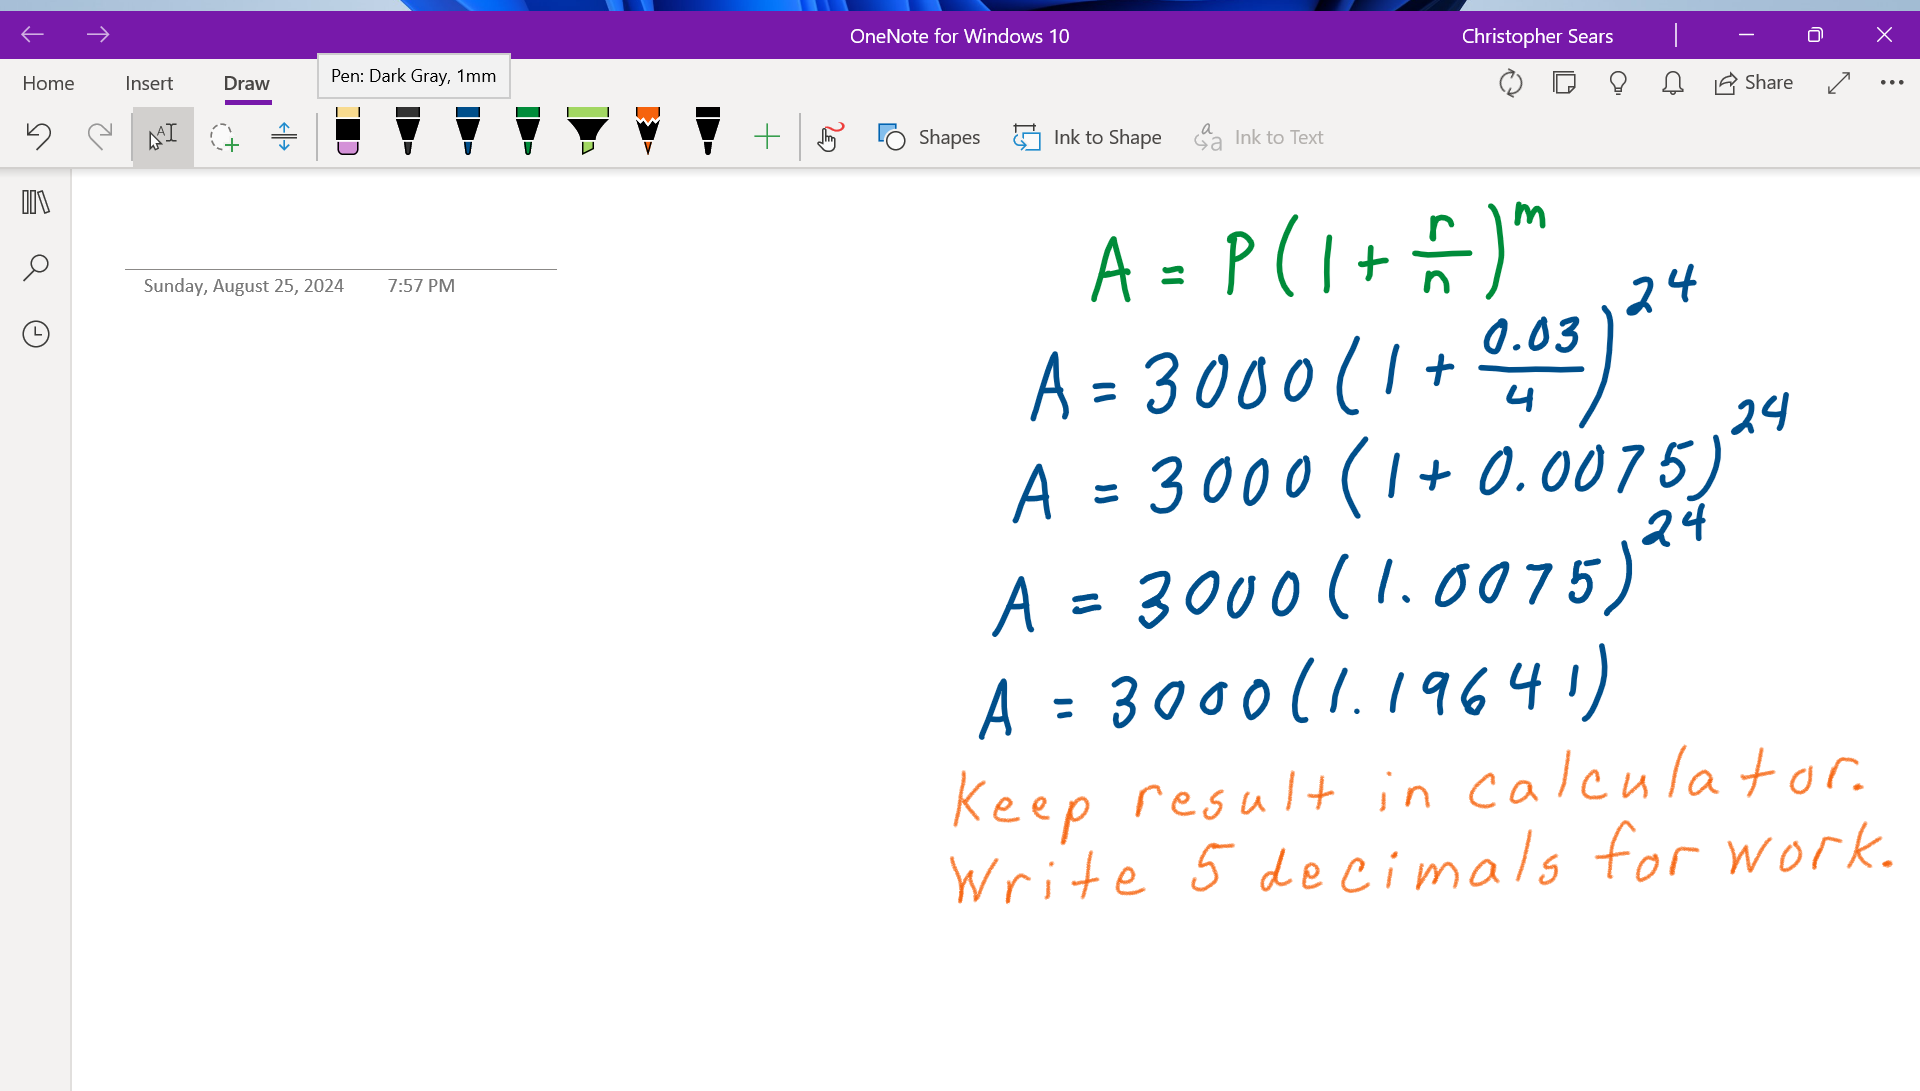 OneNote for Windows 10
Christopher Sears
Home Insert Draw Pen: Dark Gray, 1mm Share
Shapes Ink to Shape Ink to Text
Sunday, August 25, 2024 7:57 PM
A = P(1 + r/n)^m
A = 3000(1 + 0.03/4)^24
A = 3000(1 + 0.0075)^24
A = 3000(1.0075)^24
A = 3000(1.19641)
Keep result in calculator.
Write 5 decimals for work.